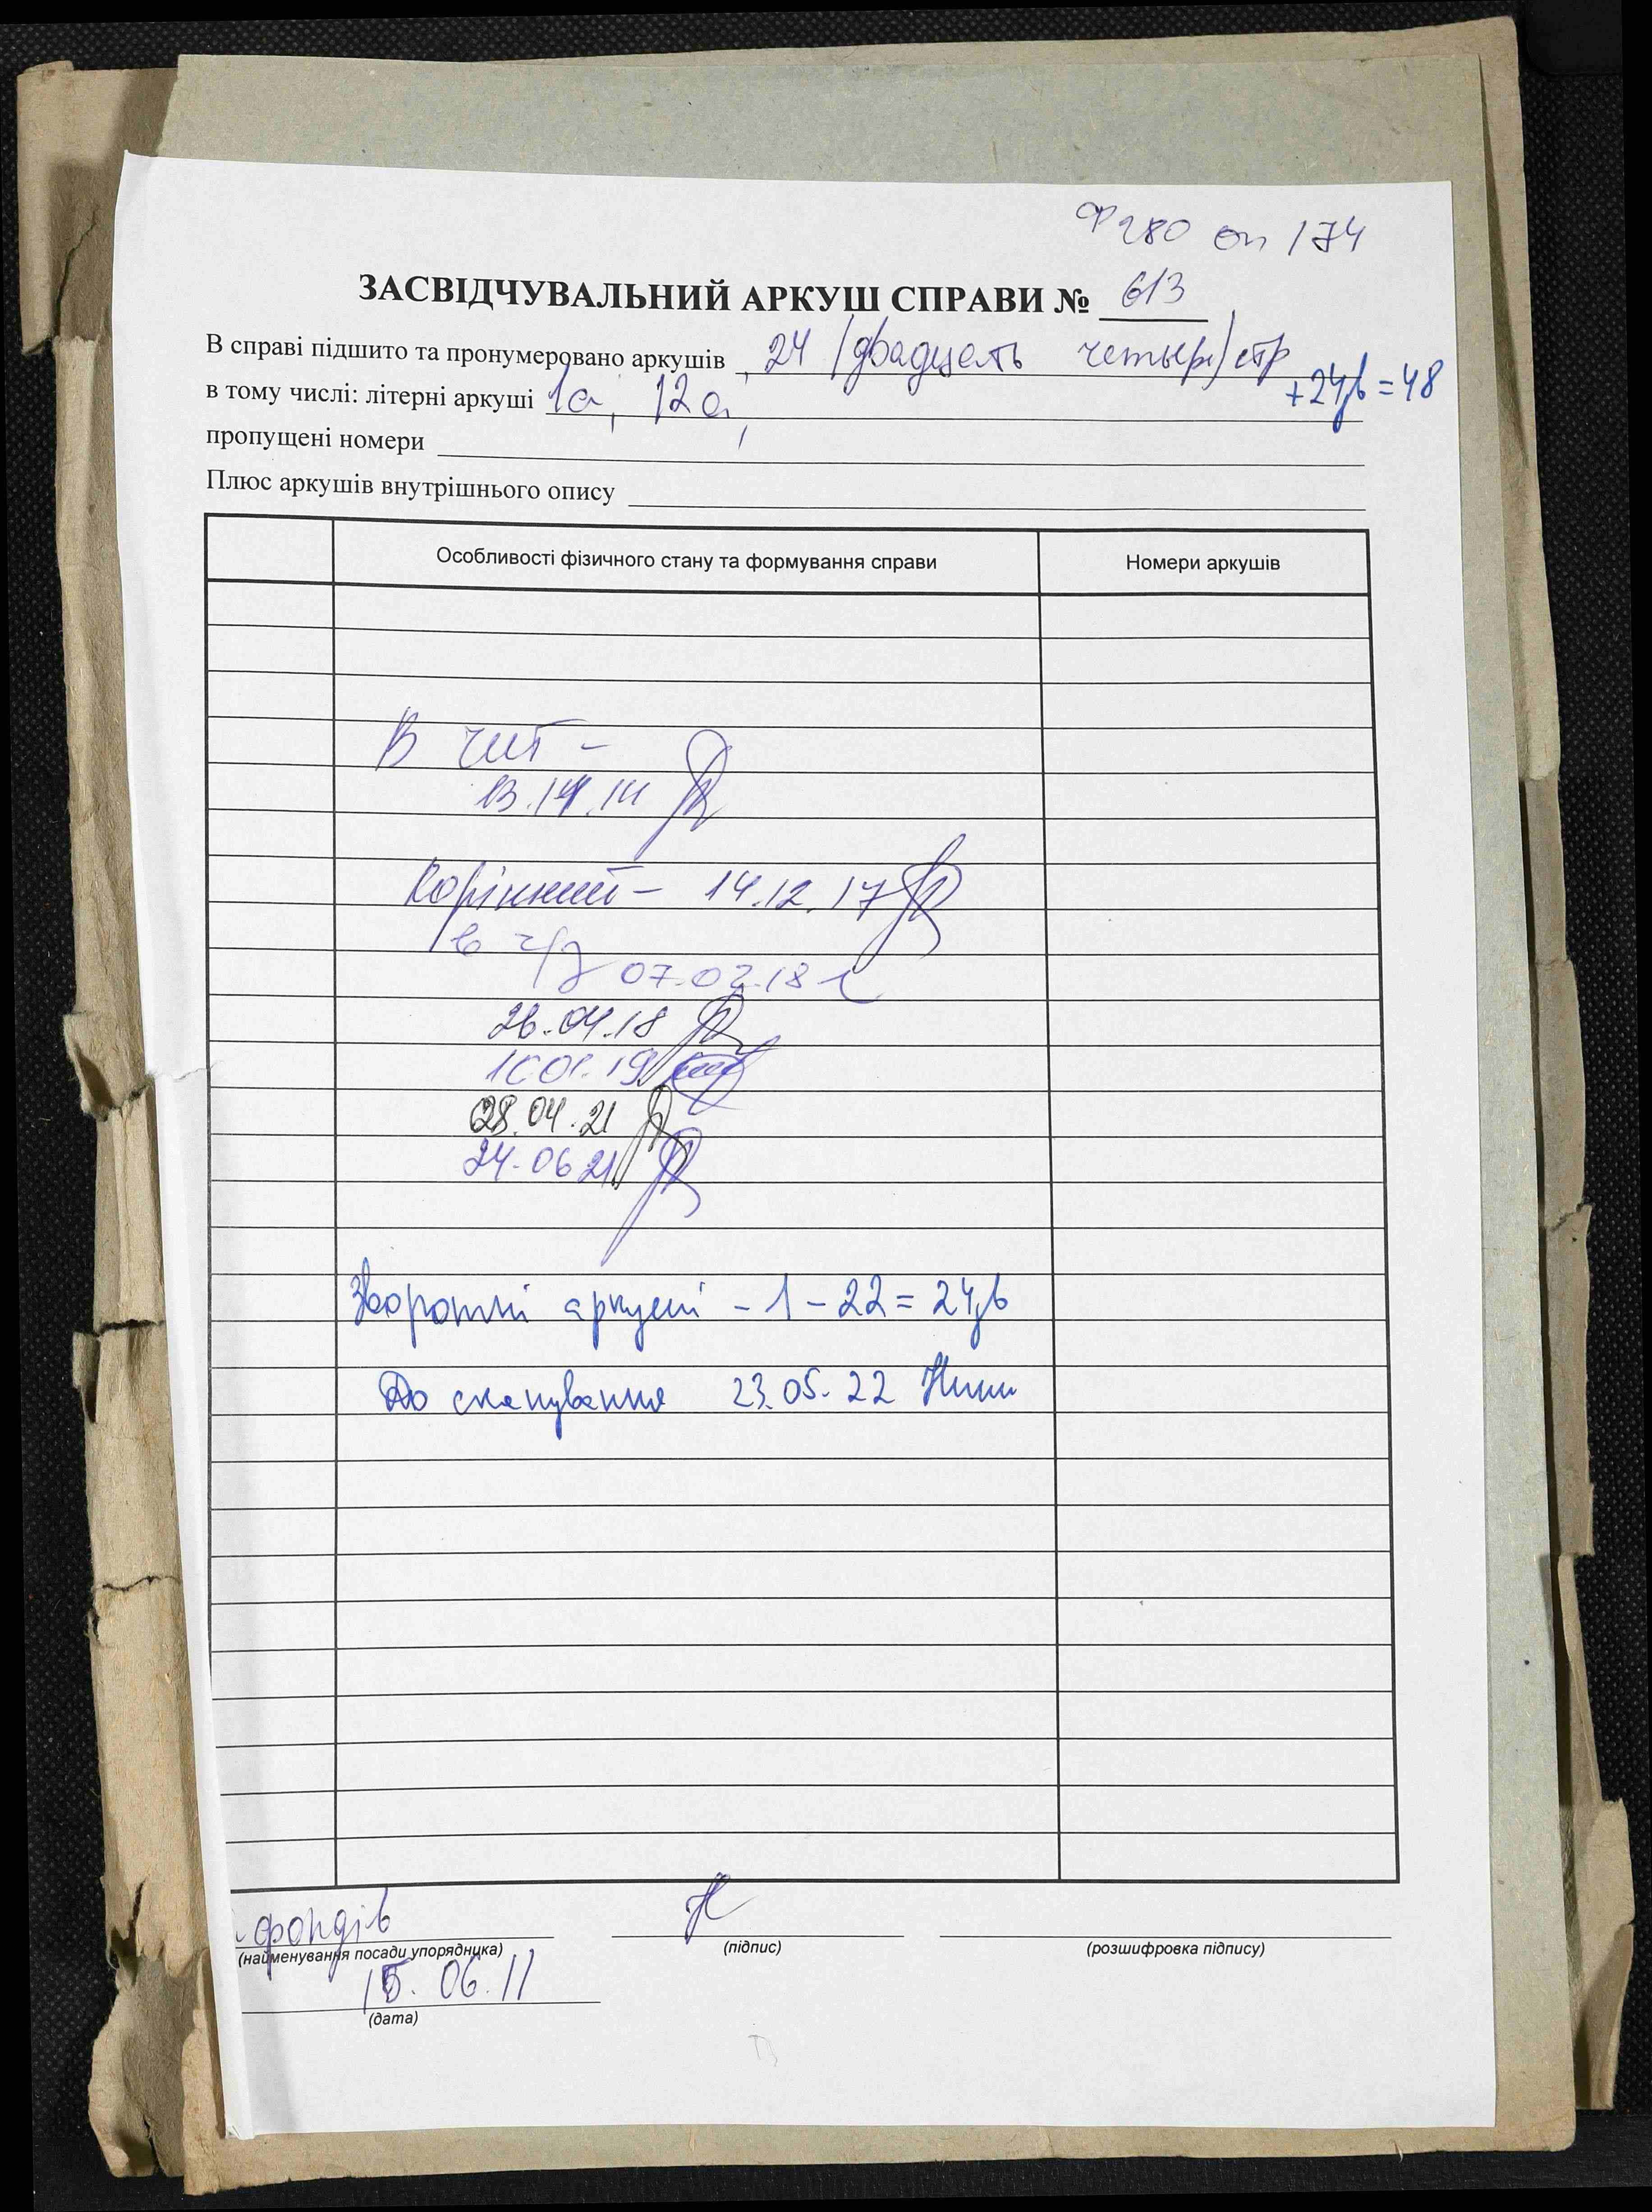 Ф 280 оп 174
ЗАСВІДЧУВАЛЬНИЙ АРКУШ СПРАВИ № 613
В справі підшито та пронумеровано аркушів 24 (двадцать четыре) стр
+24зв = 48
в тому числі: літерні аркуші 1а, 12а,
пропущені номери
Плюс аркушів внутрішнього опису
Особливості фізичного стану та формування справи
Номери аркушів
В чит –
Корінний – 14.12.17
в ч/з 07.02.18
26.04.18
10.01.19
28.04.21
24.06 21
Зворотні аркуші – 1 – 22 = 24зв
До сканування 23.05.22
фондів
(найменування посади упорядника)
(підпис)
(розшифровка підпису)
15.06.11
(дата)